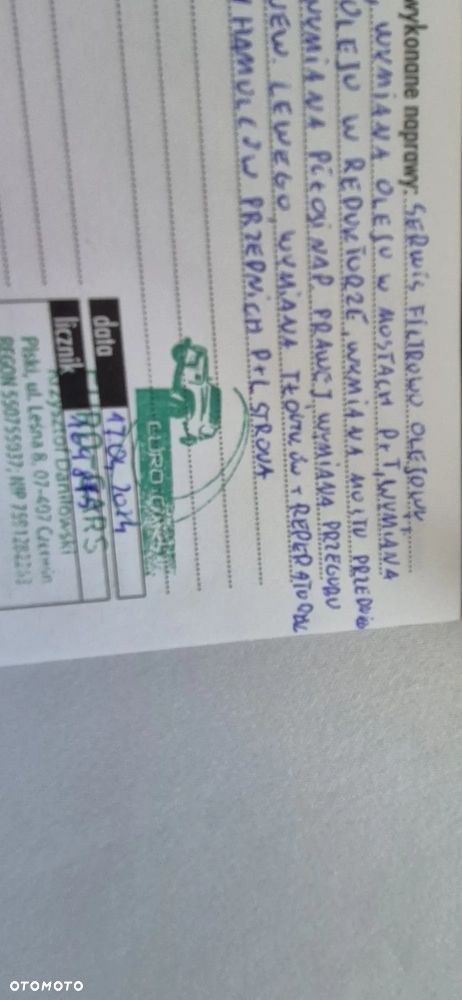 wykonane naprawy: SERWIS FILTROWO OLEJOWY
WYMIANA OLEJU W MOSTACH P+T, WYMIANA
OLEJU W REDUKTORZE, WYMIANA MOSTU PRZEDNIE
WYMIANA PÓŁOSI NAP. PRAWEJ, WYMIANA PRZEGUBU
WEW. LEWEGO, WYMIANA TŁOCZKÓW + REPERATUR
HAMULCÓW PRZEDNICH P+L STRONA
EURO CARS
data 17.04.2024
licznik
EURO CARS
Krzysztof Damnowski
Piski, ul. Leśna 8, 07-407 Czerwin
REGON 550755937, NIP
OTOMOTO